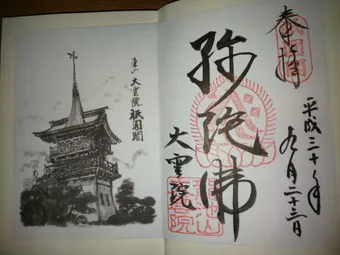 東山 大雲院 祇園閣
奉拝
平成三十年
九月二十三日
弥陀佛
大雲院